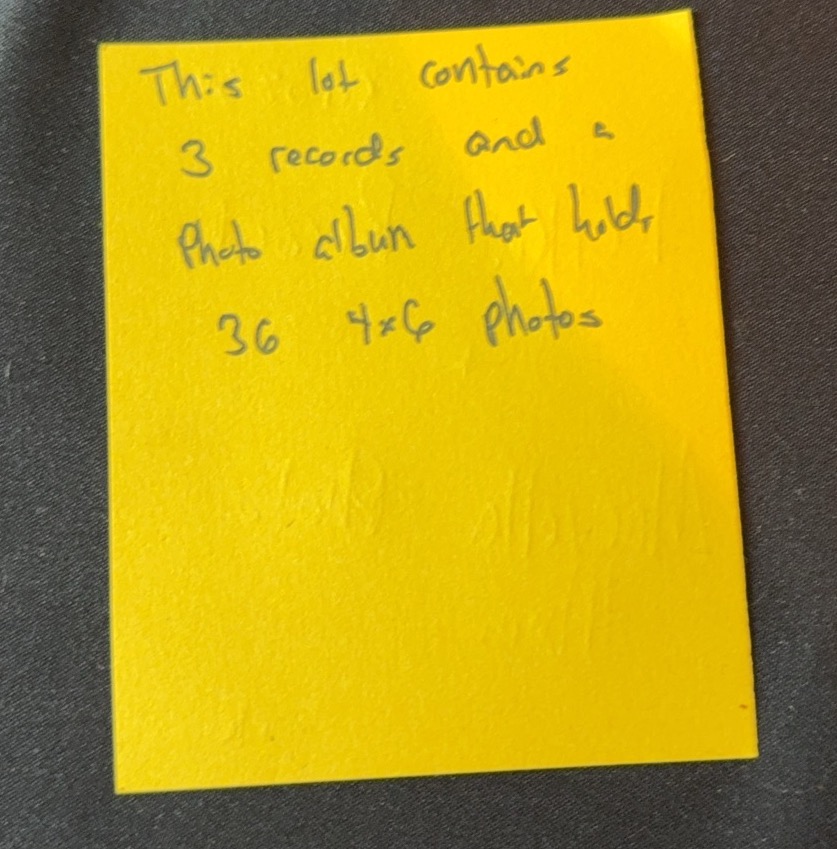 This lot contains
3 records and a
Photo album that holds
36 4x6 photos